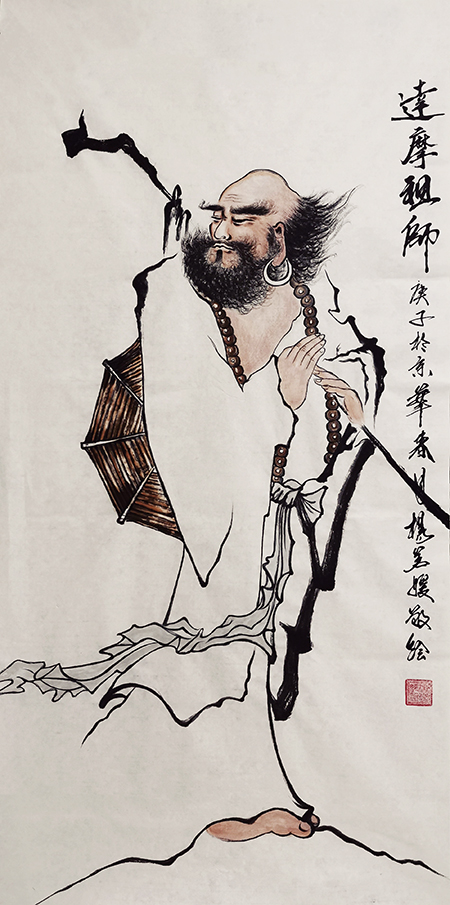 達摩祖師
庚子於京華春月楊美媛敬绘